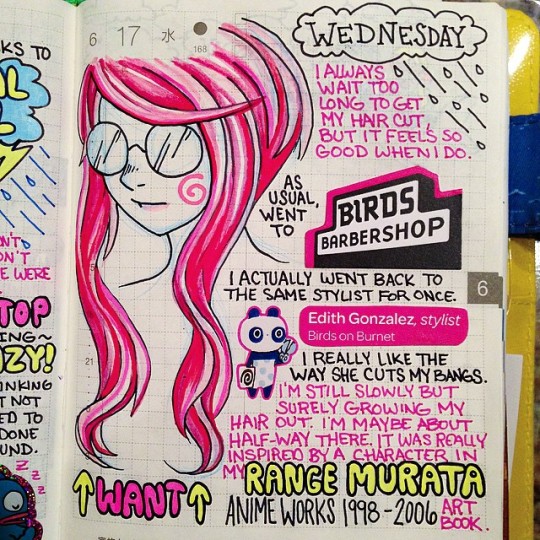 KS TO
6 17 水
168
WEDNESDAY
I ALWAYS
WAIT TOO
LONG TO GET
MY HAIR CUT,
BUT IT FEELS SO
GOOD WHEN I DO.
AS
USUAL,
WENT
TO
BIRDS
BARBERSHOP
I ACTUALLY WENT BACK TO
THE SAME STYLIST FOR ONCE.
6
Edith Gonzalez, stylist
Birds on Burnet
I REALLY LIKE THE
WAY SHE CUTS MY BANGS.
I'M STILL SLOWLY BUT
SURELY GROWING MY
HAIR OUT. I'M MAYBE ABOUT
HALF-WAY THERE. IT WAS REALLY
INSPIRED BY A CHARACTER IN
MY RANGE MURATA
ANIME WORKS 1998-2006 ART
BOOK.
↑WANT↑
21
E WERE
TOP
ING~
ZY!
INKING
T NOT
ED TO
DONE
UND.
Z Z Z